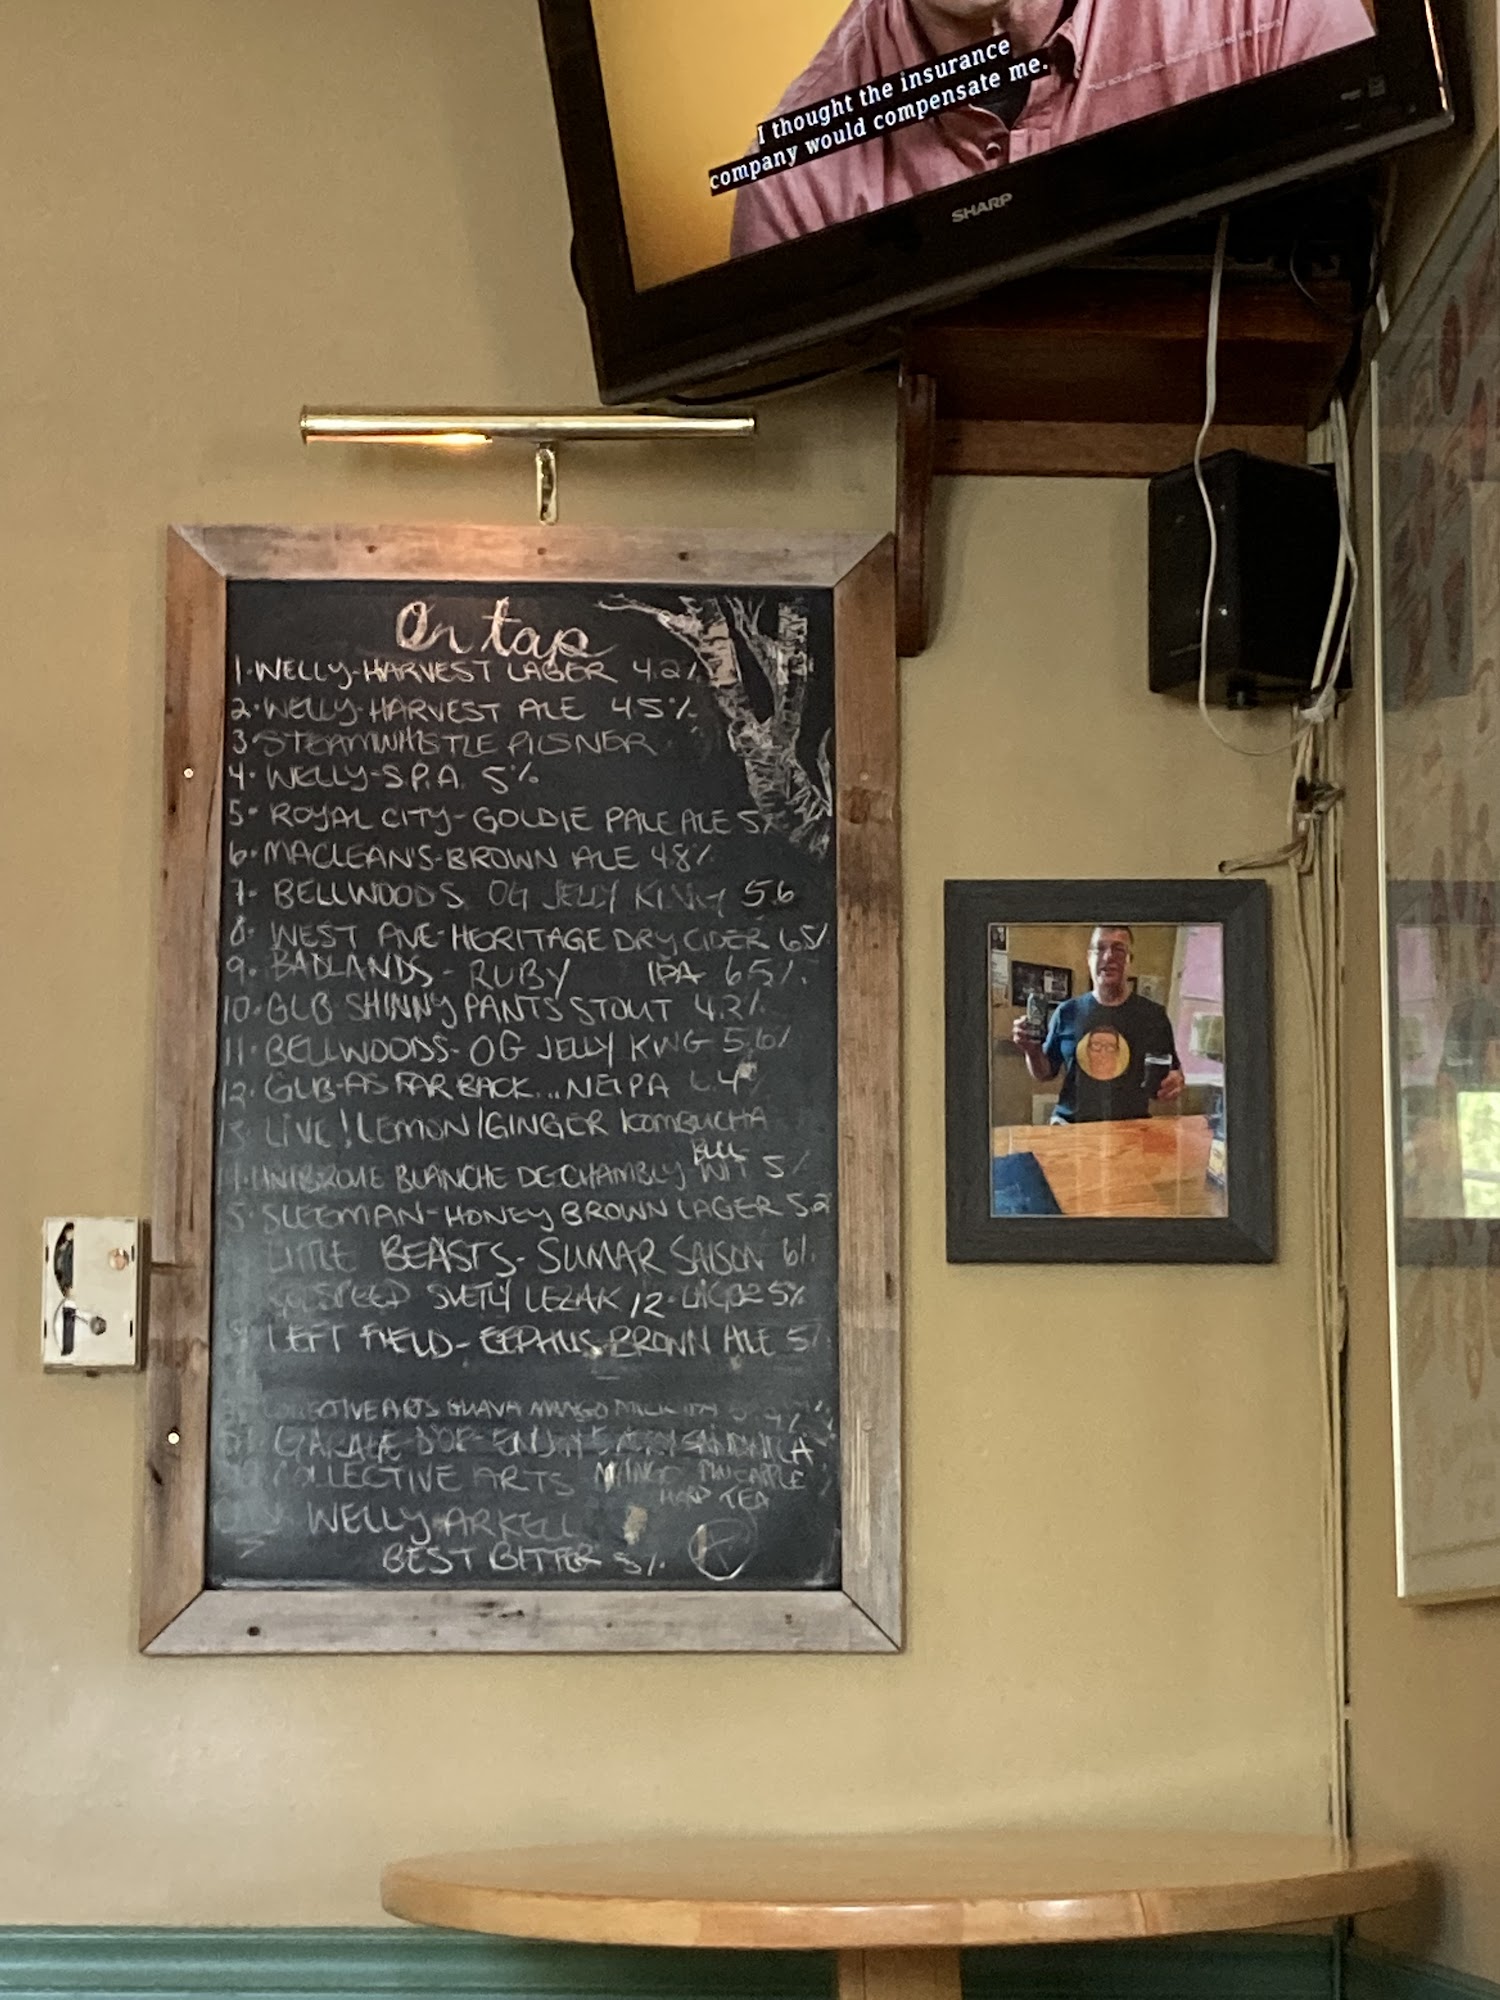 I thought the insurance
company would compensate me.
SHARP
On tap
1. WELLY-HARVEST LAGER 4.2%
2. WELLY-HARVEST ALE 4.5%
3. STEAMWHISTLE PILSNER
4. WELLY-S.P.A. 5%
5. ROYAL CITY-GOLDIE PALE ALE 5%
6. MACLEAN'S-BROWN ALE 4.8%
7. BELLWOODS OG JELLY KING 5.6
8. WEST AVE-HERITAGE DRY CIDER 6.5%
9. BADLANDS - RUBY IPA 6.5%
10. GLB SHINNY PANTS STOUT 4.2%
11. BELLWOODS- OG JELLY KING 5.6%
12. GLB-AS FAR BACK...NEIPA
LIVE! LEMON/GINGER KOMBUCHA
UNIBROUE BLANCHE DE CHAMBLY WIT 5%
5. SLEEMAN-HONEY BROWN LAGER 5.2
LITTLE BEASTS- SUMAR SAISON 6%
SVETLY LEZAK 12- 5%
LEFT FIELD- EEPHUS BROWN ALE 5%
ARTS GUAVA MANGO MILK
COLLECTIVE ARTS MANGO PINEAPPLE
HARD TEA
WELLY ARKELL
BEST BITTER 5%